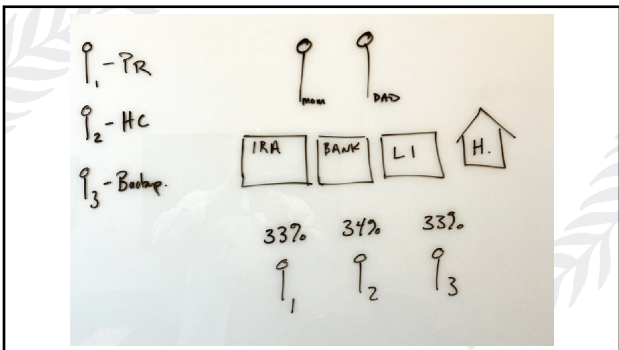 1 - PR
2 - HC
3 - Backup.
MOM DAD
IRA BANK LI H.
33% 34% 33%
1 2 3